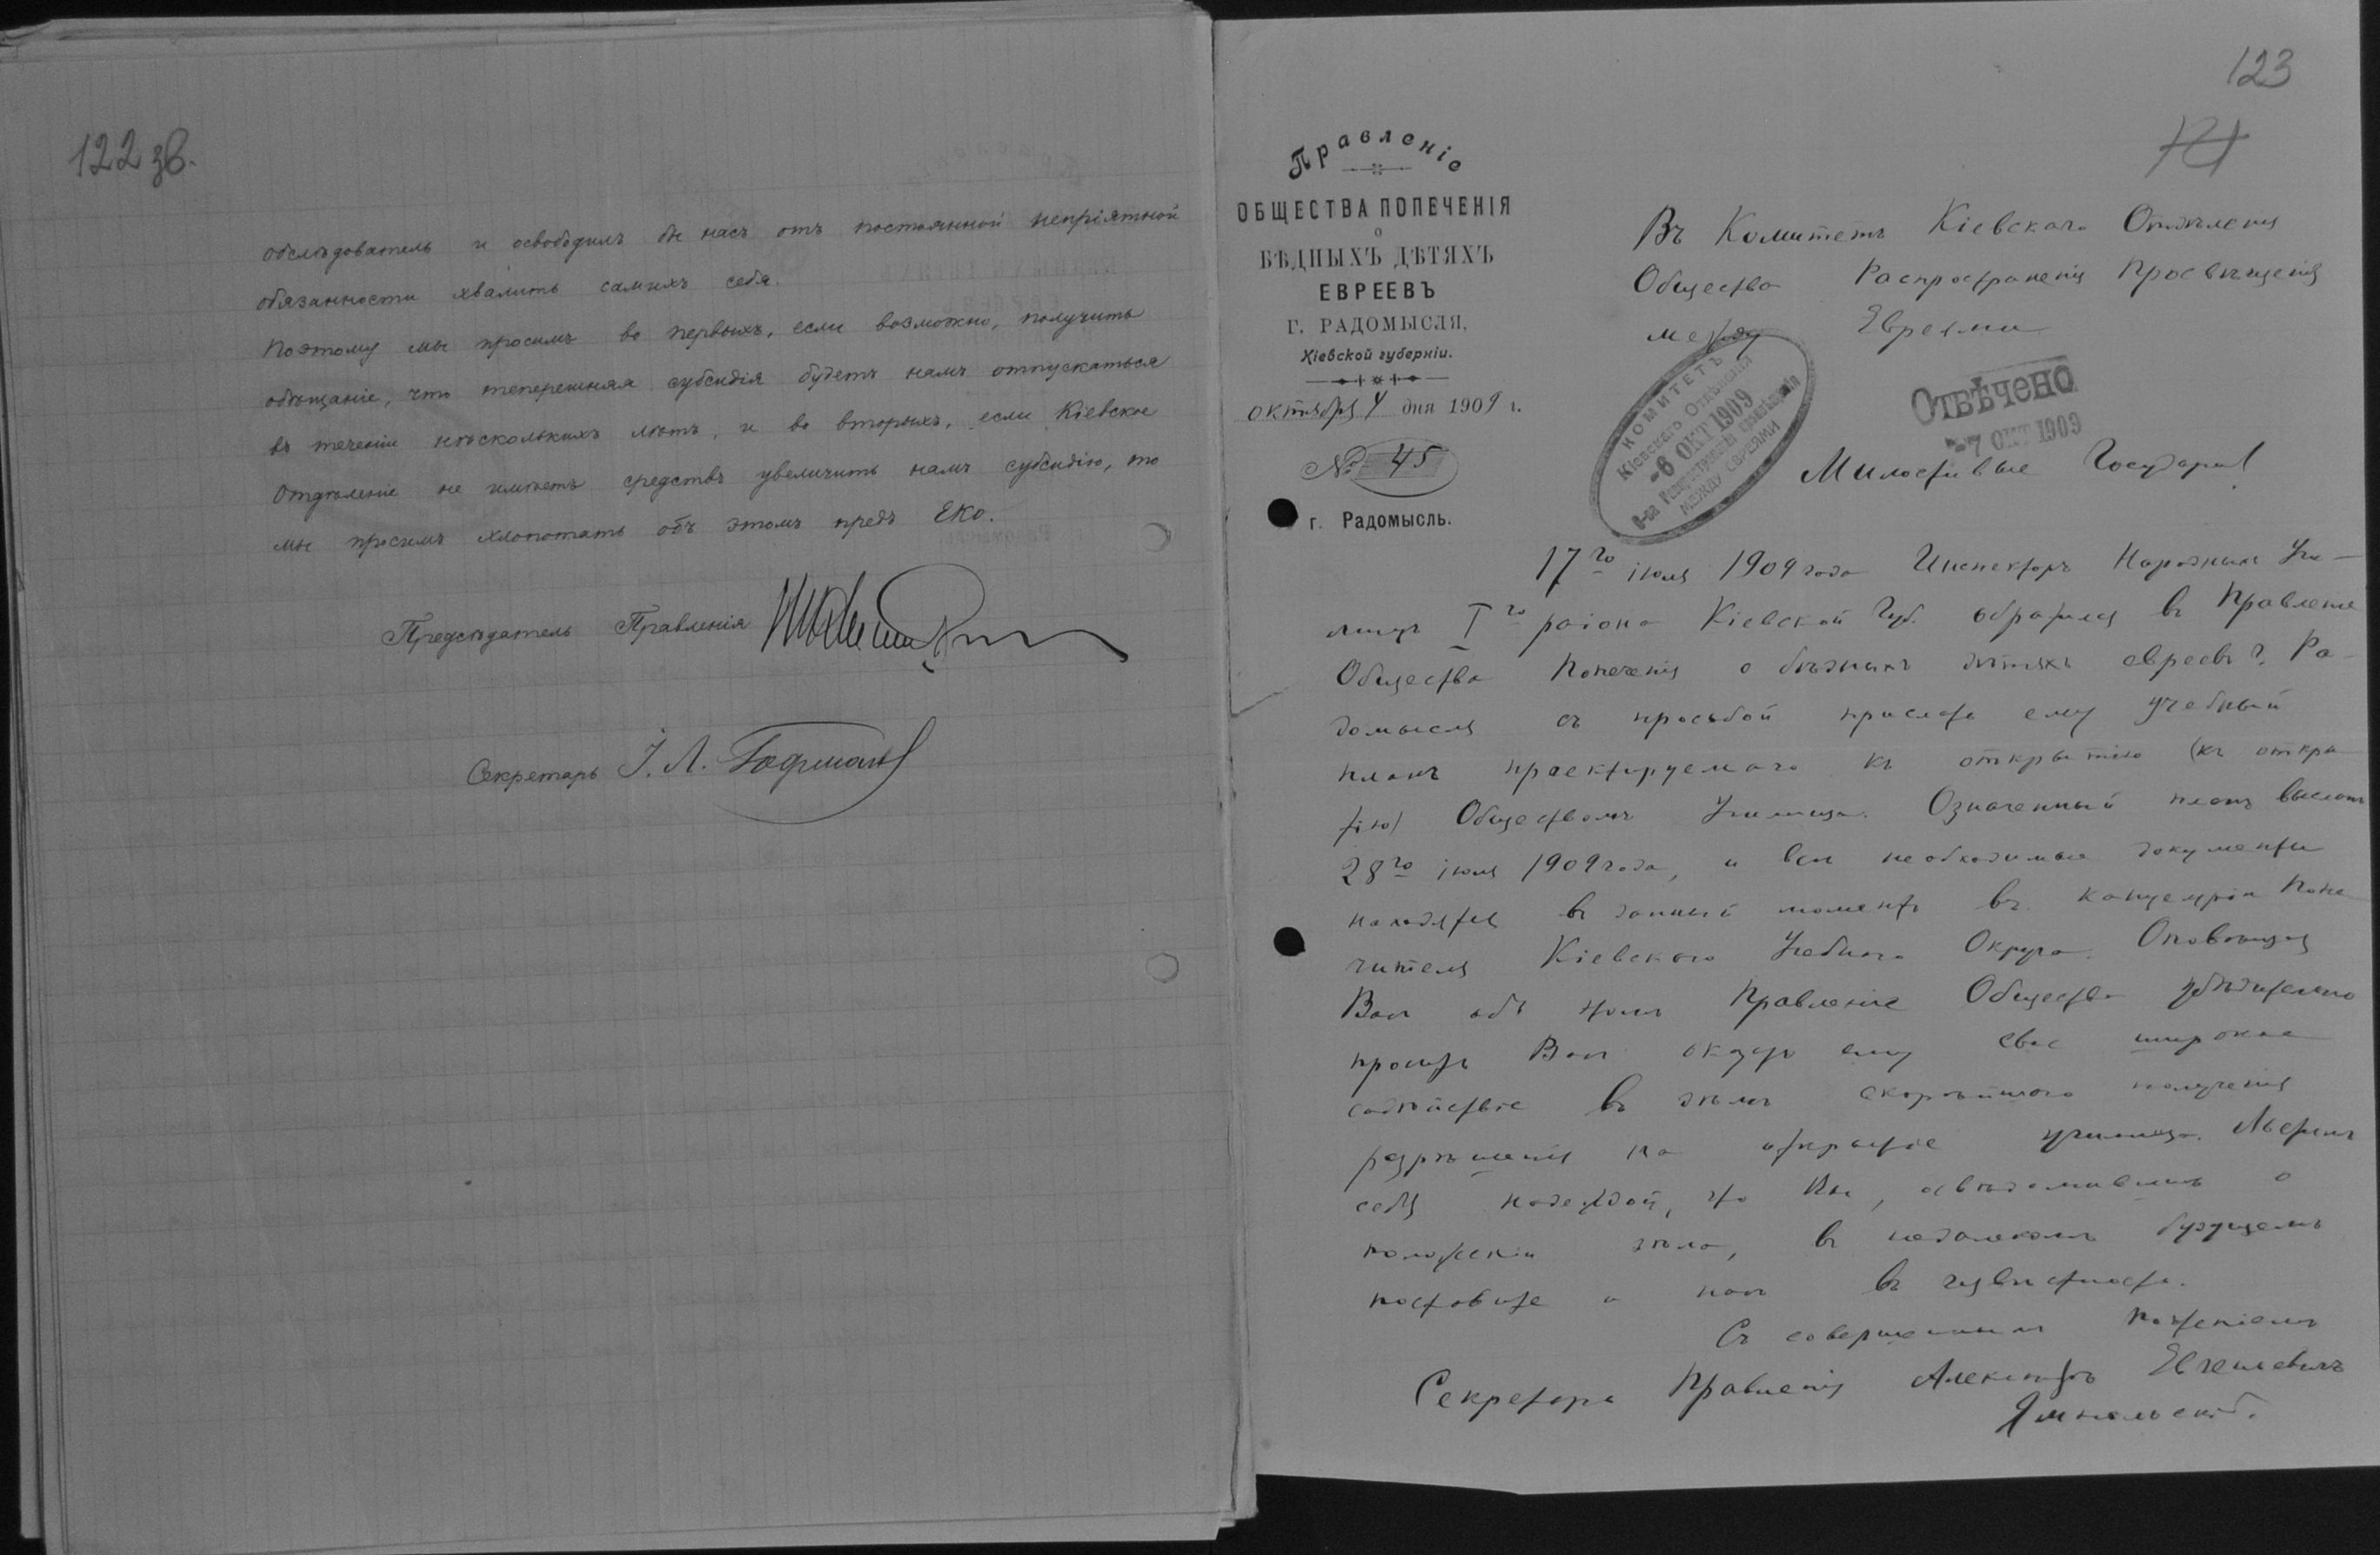 122 зв.
обслѣдователь и освободилъ бы насъ отъ постоянной непріятной
обязанности хвалить самихъ себя.
Поэтому мы просимъ во первыхъ, если возможно, получить
обѣщаніе, что теперешняя субсидія будетъ намъ отпускаться
въ теченіи нѣсколькихъ лѣтъ, и во вторыхъ, если Кіевское
Отдѣленіе не имѣетъ средствъ увеличить намъ субсидію, то
мы просимъ хлопотать объ этомъ предъ ЕКО.
Предсѣдатель Правленія
Секретарь І. Л. Гофманъ
123
Правленіе
ОБЩЕСТВА ПОПЕЧЕНІЯ
о
БѢДНЫХЪ ДѢТЯХЪ
ЕВРЕЕВЪ
Г. РАДОМЫСЛЯ,
Кіевской губерніи.
октября 4 дня 1909 г.
№ 45
г. Радомысль.
Въ Комитетъ Кіевскаго Отдѣленія
Общества Распространенія Просвѣщенія
между Евреями
КОМИТЕТЪ
Кіевскаго Отдѣленія
-6 ОКТ 1909
О-ва Распростран. Просвѣщенія
МЕЖДУ ЕВРЕЯМИ
ОТВѢЧЕНО
-7 ОКТ 1909
Милостивые Государи!
17го іюля 1909 года Инспекторъ Народныхъ Учи-
лищъ I го раіона Кіевской Губ. обратился въ Правленіе
Общества Попеченія о бѣдныхъ дѣтяхъ евреевъ г. Ра-
домысля съ просьбой прислать ему учебный
планъ проектируемаго къ открытію (къ откры
тію) Обществомъ Училища. Означенный планъ высланъ
28го іюля 1909 года, и всѣ необходимые документы
находятся въ данный моментъ въ канцеляріи Попе
чителя Кіевскаго Учебнаго Округа. Оповѣщая
Васъ объ томъ Правленіе Общества убѣдительно
проситъ Васъ оказать ему свое широкое
содѣйствіе въ дѣлѣ скорѣйшаго полученія
разрѣшенія на открытіе училища. Льстимъ
себя надеждой, что Вы, освѣдомившись о
положеніи дѣла, въ недалекомъ будущемъ
поставите и насъ въ извѣстность.
Съ совершеннымъ почтеніемъ
Секретарь Правленія Александръ Евгеньевичъ
Ямпольскій.